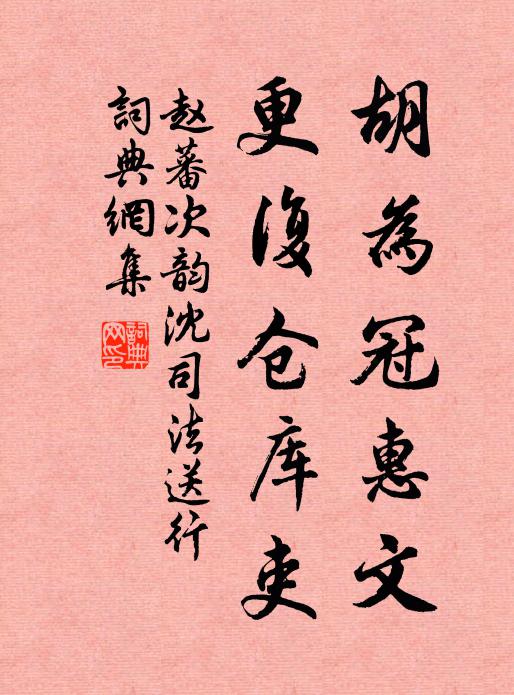 胡為冠惠文
更復仓库吏
赵蕃次韵沈司法送行
詞典網集
詞典
网印